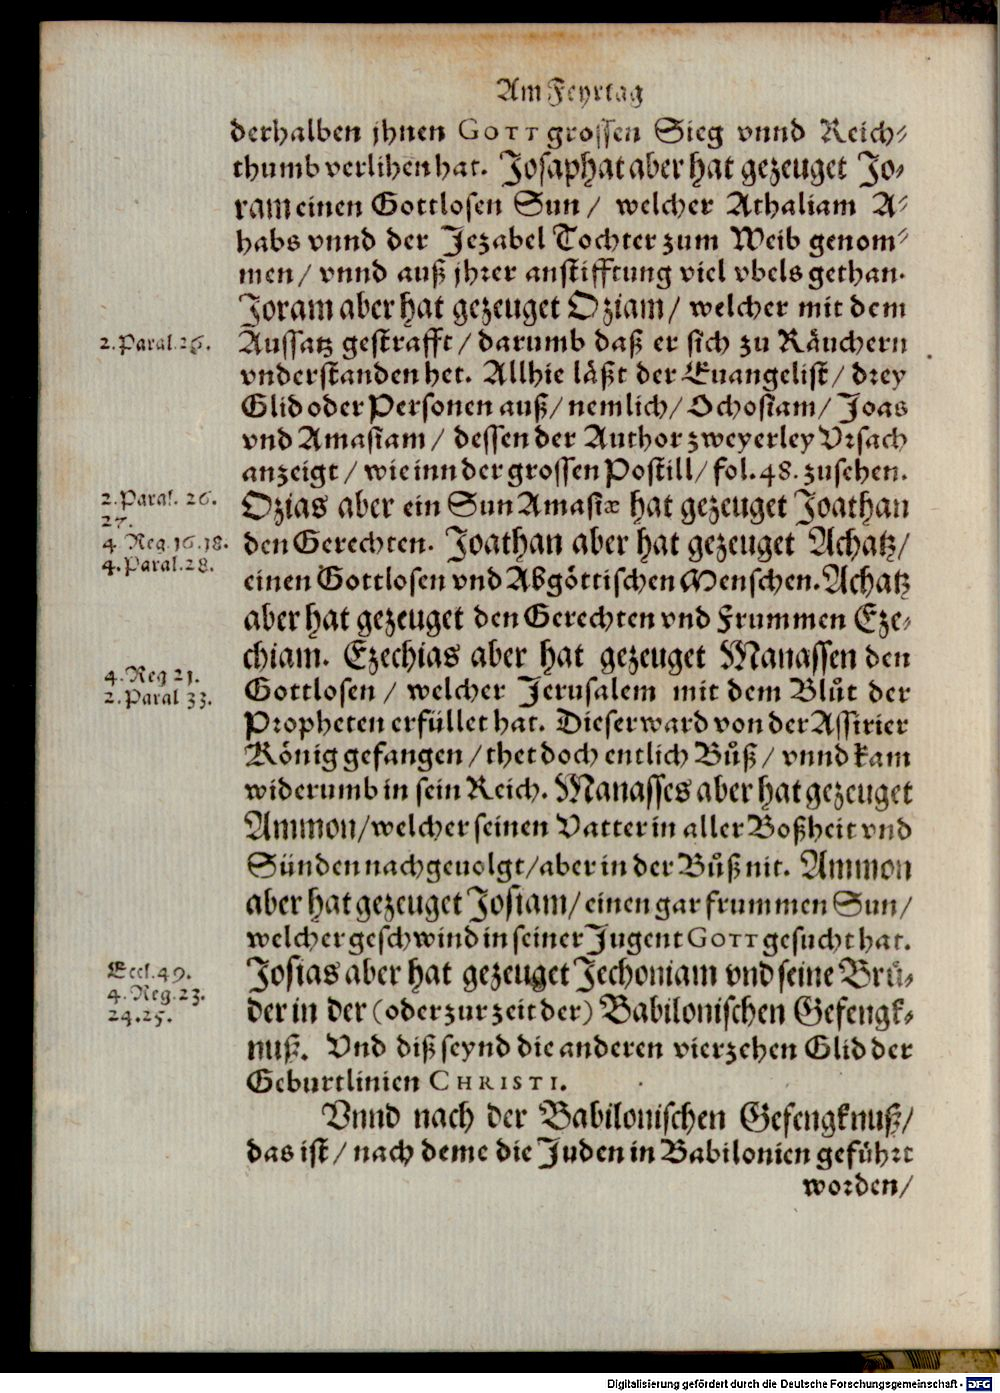 Am Feyrtag
derhalben jhnen GOTT grossen Sieg vnnd Reich⸗
thumb verlihen hat. Josaphat aber hat gezeuget Jo⸗
ram einen Gottlosen Sun / welcher Athaliam A⸗
habs vnnd der Jezabel Tochter zum Weib genom⸗
men / vnnd auß jhrer anstifftung viel vbels gethan.
Joram aber hat gezeuget Oziam / welcher mit dem
2. Paral. 26.
Aussatz gestrafft / darumb daß er sich zu Räuchern
vnderstanden het. Allhie läßt der Euangelist / drey
Glid oder Personen auß / nemlich / Ochosiam / Joas
vnd Amasiam / dessen der Author zweyerley Vrsach
anzeigt / wie inn der grossen Postill / fol. 48. zusehen.
2. Paral. 26.
27.
Ozias aber ein Sun Amasiæ hat gezeuget Joathan
4 Reg. 16. 18.
den Gerechten. Joathan aber hat gezeuget Achatz /
4. Paral. 28.
einen Gottlosen vnd Abgöttischen Menschen. Achatz
aber hat gezeuget den Gerechten vnd Frummen Eze⸗
chiam. Ezechias aber hat gezeuget Manassen den
4. Reg 21.
2. Paral 33.
Gottlosen / welcher Jerusalem mit dem Blůt der
Propheten erfüllet hat. Dieser ward von der Assirier
König gefangen / thet doch entlich Bůß / vnnd kam
widerumb in sein Reich. Manasses aber hat gezeuget
Ammon / welcher seinen Vatter in aller Boßheit vnd
Sünden nachgeuolgt / aber in der Bůß nit. Ammon
aber hat gezeuget Josiam / einen gar frummen Sun /
welcher geschwind in seiner Jugent GOTT gesucht hat.
Eccl. 49.
4. Reg. 23.
24. 25.
Josias aber hat gezeuget Jechoniam vnd seine Brů⸗
der in der (oder zur zeit der) Babilonischen Gefengk⸗
nuß. Vnd diß seynd die anderen vierzehen Glid der
Geburtlinien CHRISTI.
Vnnd nach der Babilonischen Gefengknuß /
das ist / nach deme die Juden in Babilonien geführt
worden /
Digitalisierung gefördert durch die Deutsche Forschungsgemeinschaft - DFG